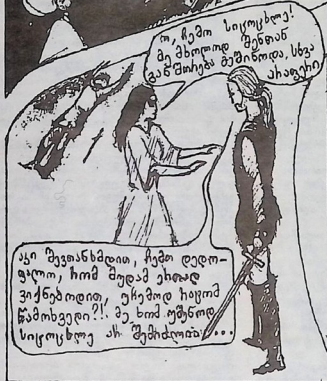 ო, ჩემო სიცოცხლე!
მე მხოლოდ შენთან
განშორება მეშინოდა, სხვა
არაფერი
აკი შევთანხმდით, ჩემო დედო-
ფალო, რომ მუდამ ერთად
ვიქნებოდით, უჩემოდ რატომ
წამოხვედი?!. მე ხომ უშენოდ
სიცოცხლე არ შემიძლია...